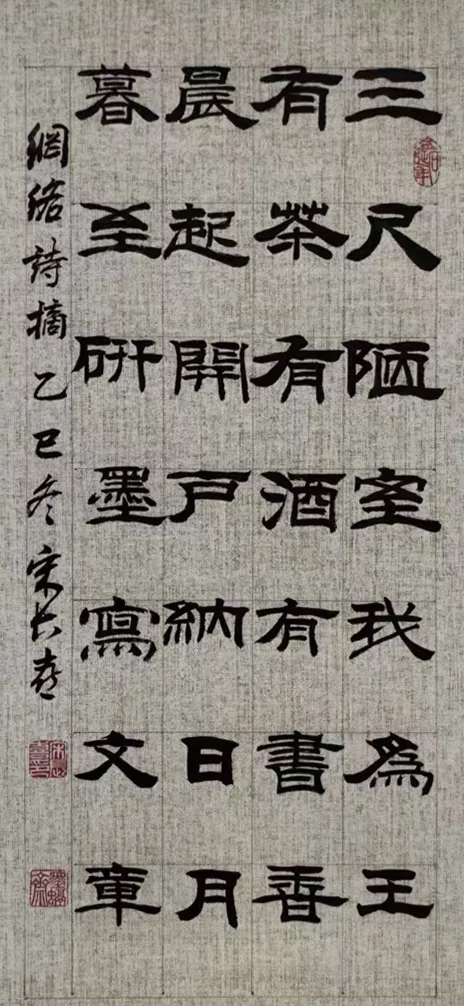 三尺陋室我為王
有茶有酒有書香
晨起開戶納日月
暮至研墨寫文章
網絡詩摘乙巳冬宋大春